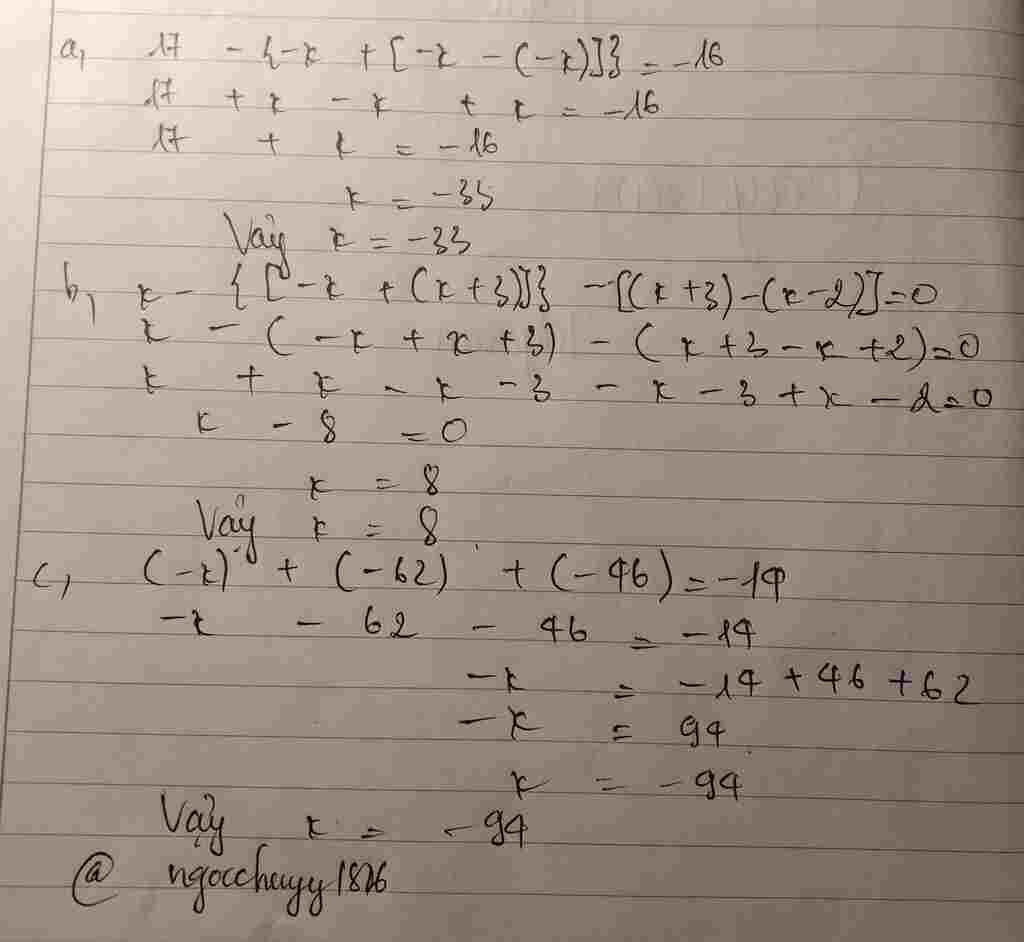 a, 17 - {-x + [-x - (-x)]} = -16
17 + x - x + x = -16
17 + x = -16
x = -33
Vậy x = -33
b, x - {[-x + (x+3)]} - [(x+3) - (x-2)] = 0
x - (-x + x + 3) - (x + 3 - x + 2) = 0
x + x - x - 3 - x - 3 + x - 2 = 0
x - 8 = 0
x = 8
Vậy x = 8
c, (-x) + (-62) + (-46) = -14
-x - 62 - 46 = -14
-x = -14 + 46 + 62
-x = 94
x = -94
Vậy x = -94
@ngocchuyy1826